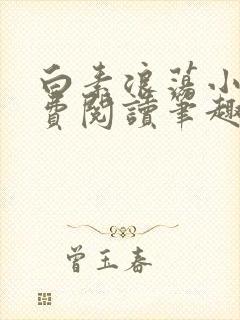 白素浪荡小
费阅读笔趣
曾玉春